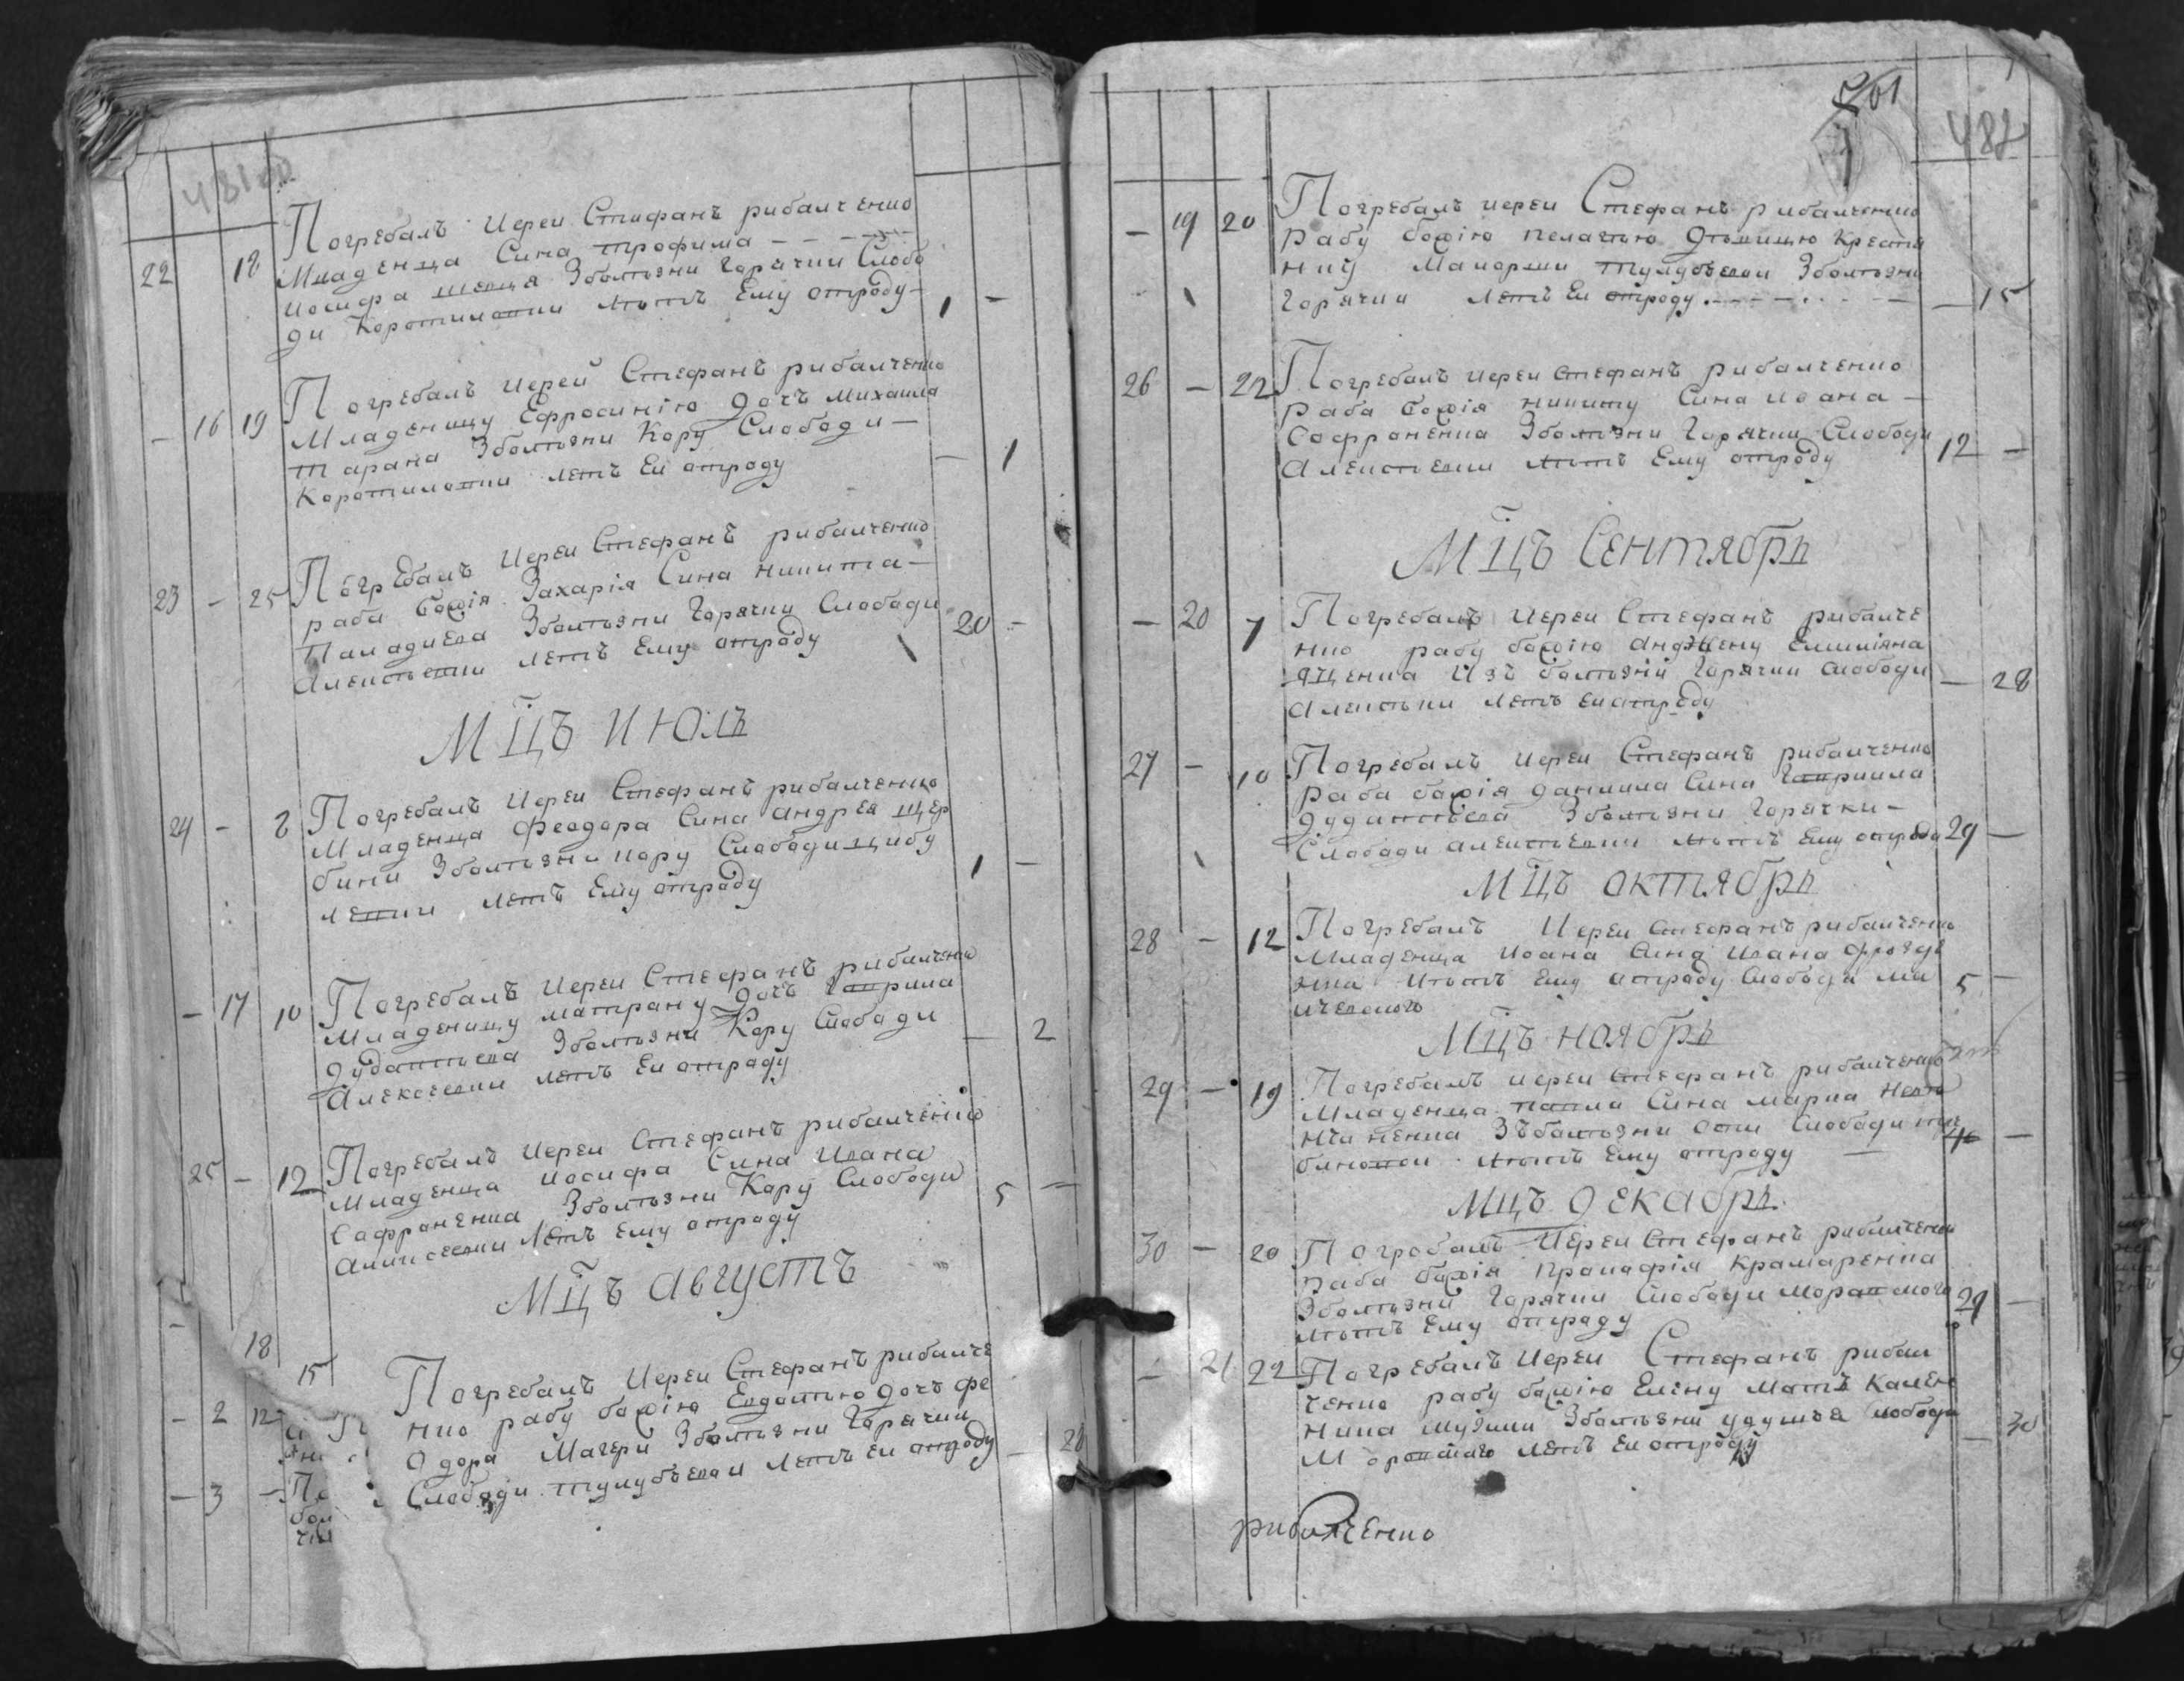 481об
22 18 Погребалъ Иереи Стифанъ рибалченко
Младенца Сина трофима - - - -
иосифа шевця Зболѣзни Горячки Слобо
ди Коротиловки лѣтъ Ему отроду - 1 -
- 16 19 Погребалъ Иерей Стефанъ рибалченко
Младеницу Ефросинію дочъ Михаила
тарана Зболѣзни Кору Слободи -
Коротиловки летъ Еи отроду - 1
23 - 25 Погребалъ Иереи Стефанъ рибалченко
раба божія Захарія Сина никита -
Паладиева Зболѣзни Горячки Слободи
Алексѣевки летъ Ему отроду 20 -
МЦЪ ИЮЛЬ
24 - 8 Погребалъ Иереи Стефанъ рибалченко
Младенца Феодора Сина андрея щер
бини Зболѣзни кору Слободи цибу
левки летъ Ему отроду 1 -
- 17 10 Погребалъ Иереи Стефанъ рибалченко
Младеницу матрону дочъ Гаврила
Кору Слободи
Алексеевки летъ Еи отроду - 2
25 - 12 Погребалъ Иереи Стефанъ рибалченко
Младенца иосифа Сина Ивана
Сафраненка Зболѣзни Кору Слободи
летъ Ему отроду 5 -
МЦЪ АВГУСТЪ
- 18 15 Погребалъ Иереи Стефанъ рибалче
нко рабу божію Евдотью дочъ фе
одора Мачери Зболѣзни Горячки
Слободи тулубъевои летъ Еи отроду - 28
- 2 12
- 3 -
501
482
- 19 20 Погребалъ иереи Стефанъ рибалченко
рабу божію пелагѣю дѣвицю Крестя
нку Маиорши тулубъевои Зболѣзни
Горячки летъ Еи отроду - - - - 15
26 - 22 Погребалъ иереи Стефанъ рибалченко
раба божія никиту Сина ивана -
Софроненка Зболѣзни Горячки Слободи
Алексѣевки лѣтъ Ему отроду 12 -
МЦЪ СЕНТЯБРЬ
- 20 7 Погребалъ Иереи Стефанъ рибалче
нко рабу божію Емилияна
яценка Изъ болѣзни Горячки Слободи
летъ еи отроду - 28
27 - 10 Погребалъ Иереи Стефанъ рибалченко
раба божія даниила Сина Гавриила
Зболѣзни Горячки -
Слободи алексѣевки лѣтъ Ему отроду 29 -
МЦЪ ОКТЯБРЬ
28 - 12 Погребалъ Иереи Стефанъ рибалченко
Младенца Иоана Сина Ивана
лѣтъ Ему отроду Слободи 5 -
МЦЪ НОЯБРЬ
29 - 19 Погребалъ иереи Стефанъ рибалченко
Младенца павла Сина марка
Зъболѣзни оспи Слободи
лѣтъ Ему отроду -
МЦЪ ДЕКАБРЬ
30 - 20 Погребалъ Иереи Стефанъ рибалченко
раба божія Крамаренка
Зболѣзни Горячки Слободи
лѣтъ Ему отроду 29 -
- 21 22 Погребалъ Иереи Стефанъ рибал
ченко рабу божію Елену Мать Камен
Зболѣзни удушъя Слободи
летъ Еи отроду - 30
рибалченко